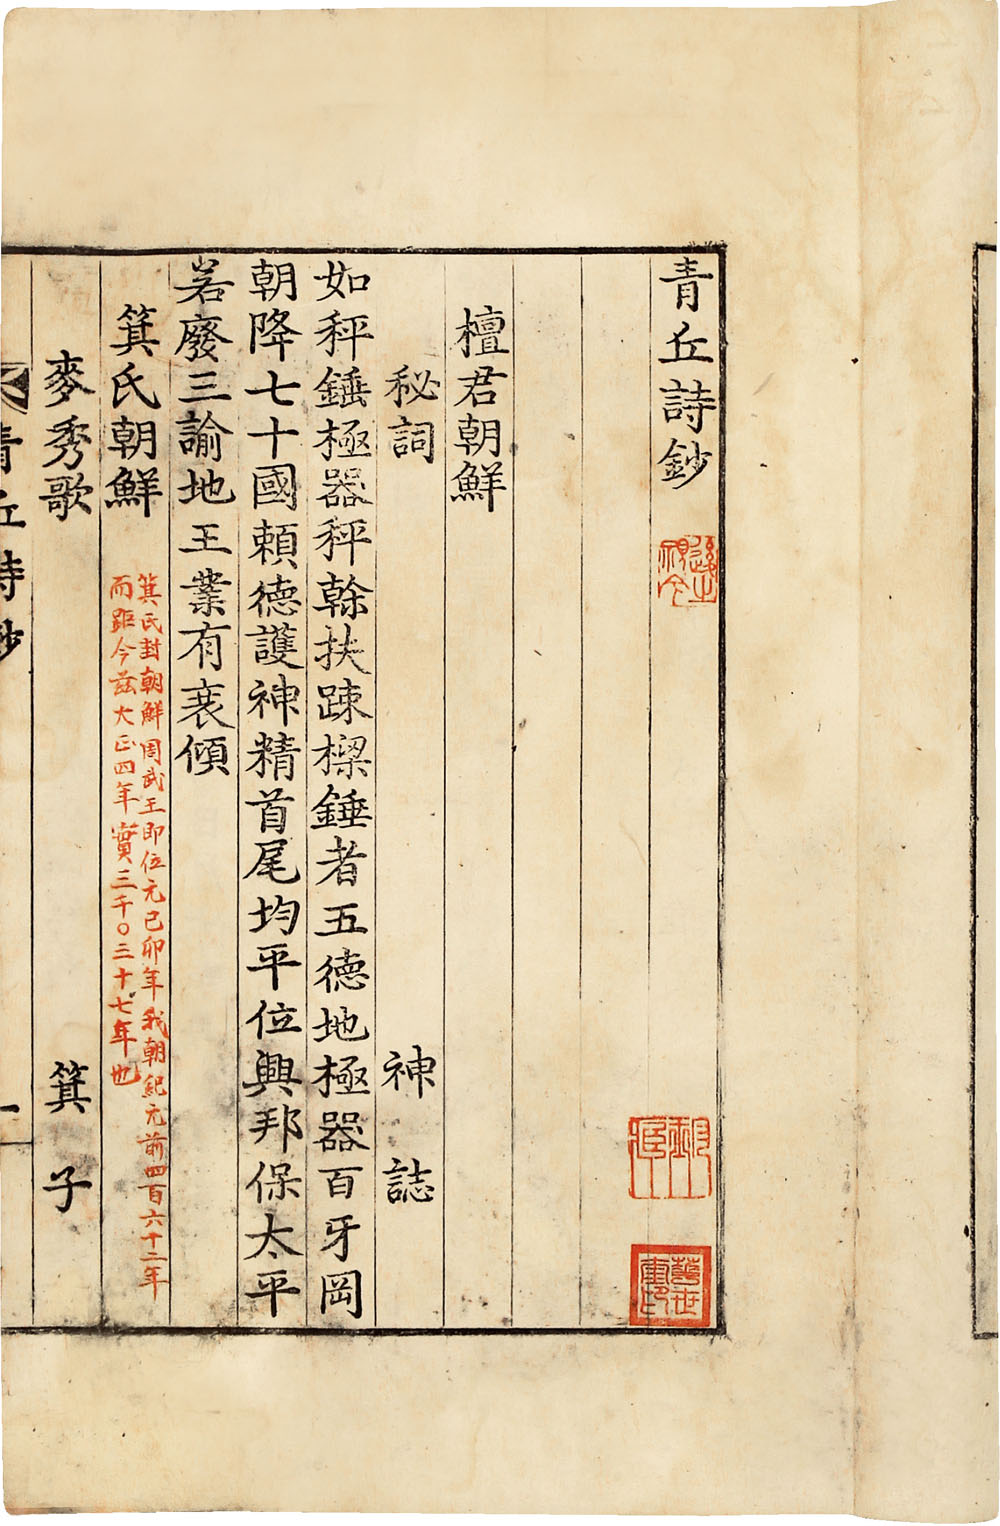 青丘詩鈔
檀君朝鮮
秘詞 神誌
如秤錘極器秤幹扶踈樑錘者五德地極器百牙岡
朝降七十國賴德護神精首尾均平位興邦保太平
若廢三諭地王業有衰傾
箕氏朝鮮
箕氏封朝鮮周武王即位元己卯年我朝紀元前四百六十二年
而距今茲大正四年實三千〇三十七年也
麥秀歌 箕子
青丘詩鈔 一